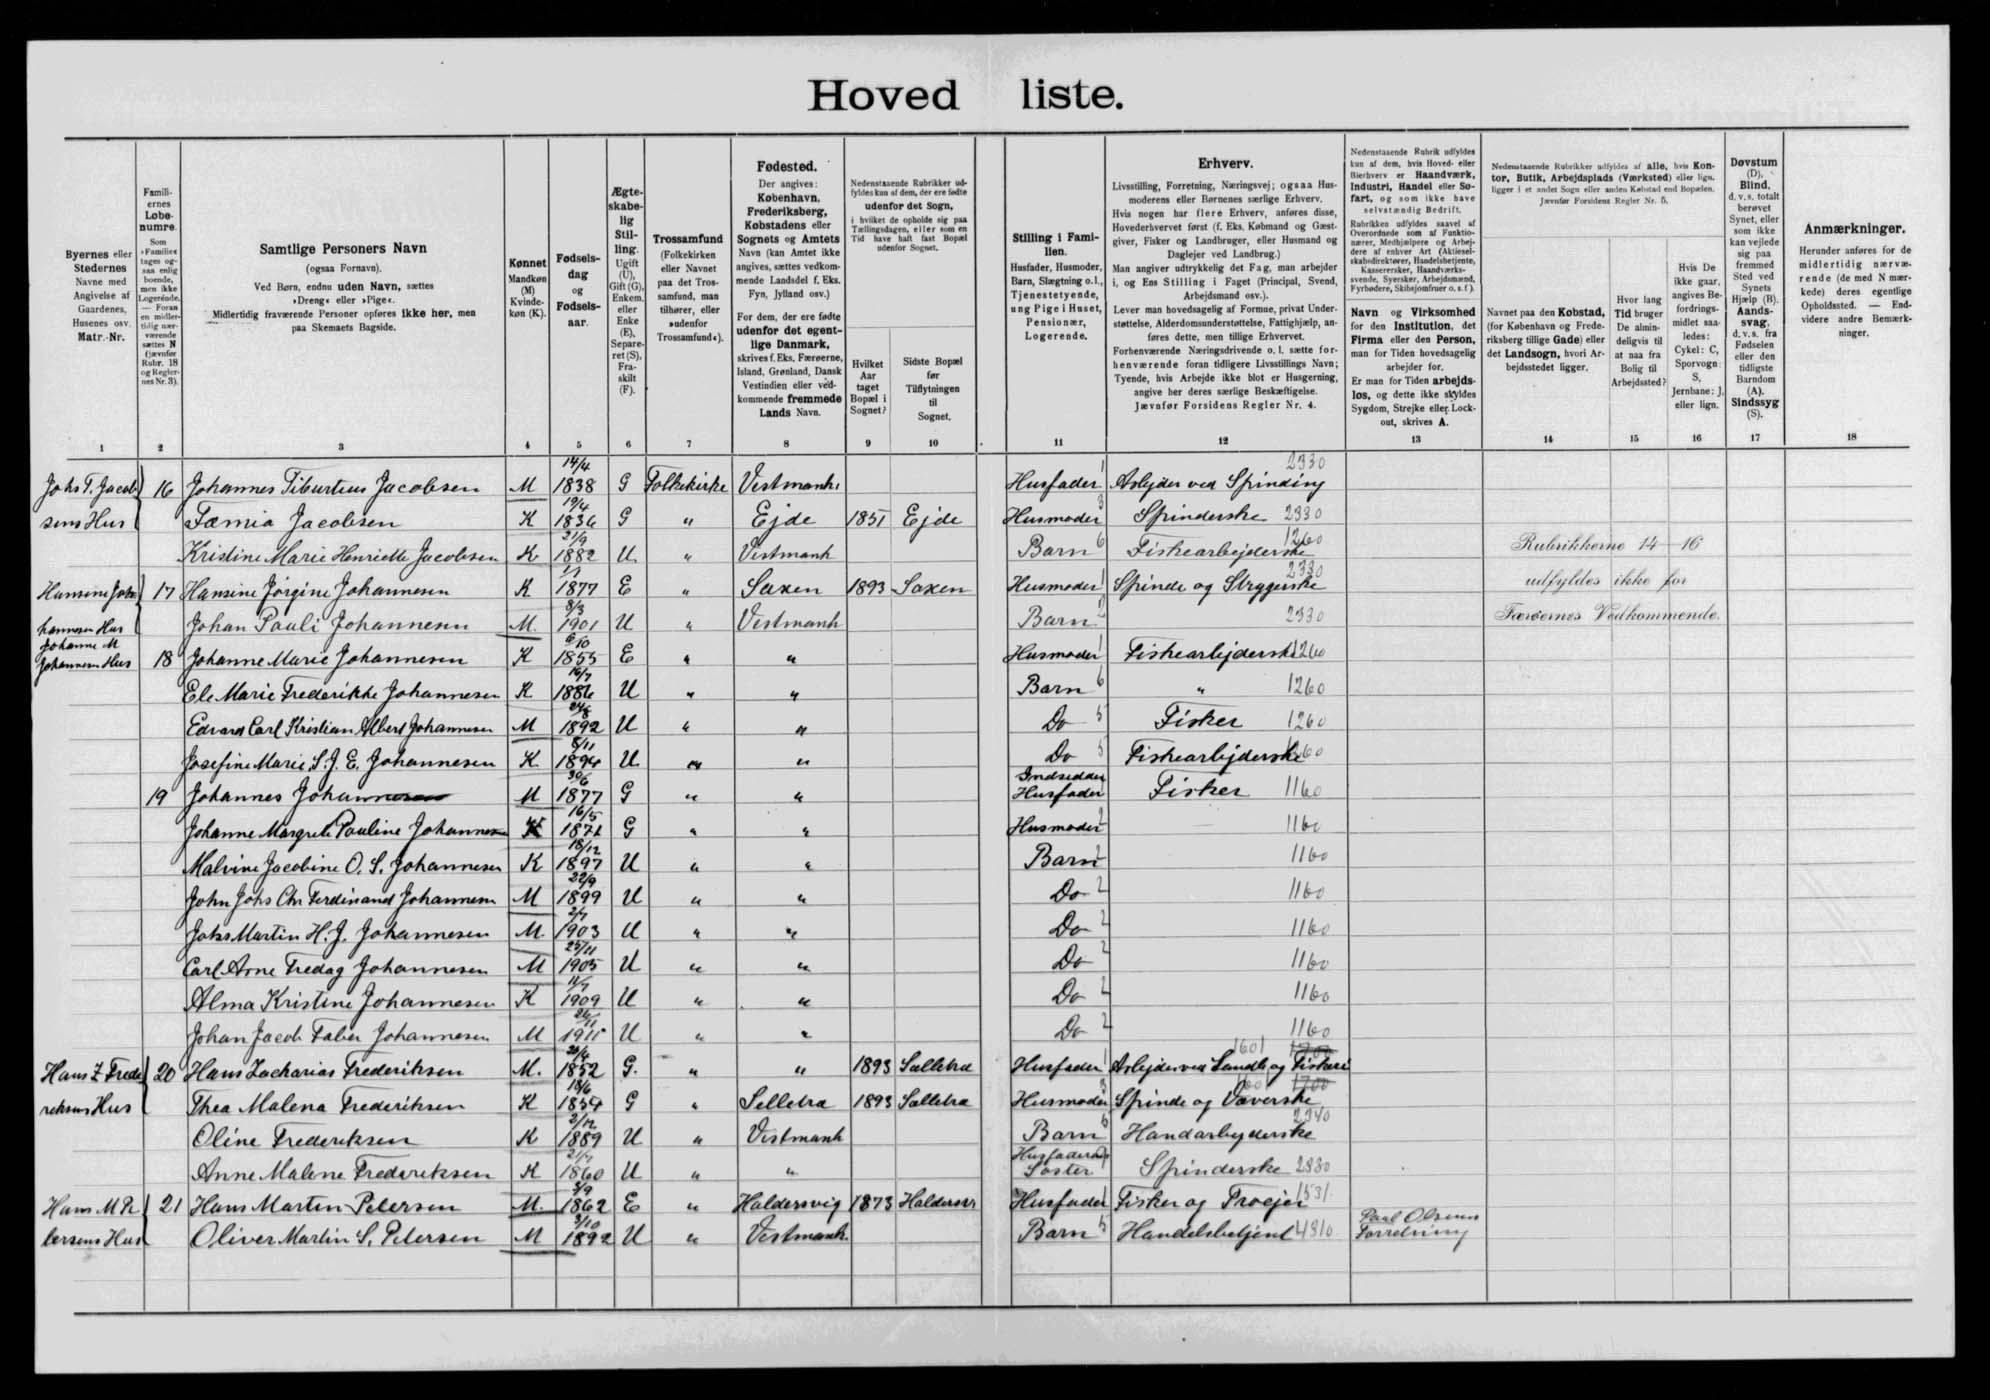 Hoved liste.
Byernes eller Stedernes Navne med Angivelse af Gaardenes, Husenes osv. Matr.-Nr.
Famili-ernes Løbe-numre.
Som »Familie« tages og-saa enlig boende, men ikke Logerende. — Foran en midler-tidig nær-værende sættes N (jævnfør Rubr. 18 og Regler-nes Nr. 3).
Samtlige Personers Navn
(ogsaa Fornavn).
Ved Børn, endnu uden Navn, sættes »Dreng« eller »Pige«.
Midlertidig fraværende Personer opføres ikke her, men paa Skemaets Bagside.
Kønnet
Mandkøn (M) Kvinde-køn (K).
Fødsels-dag og Fødsels-aar.
Ægte-skabe-lig Stil-ling.
Ugift (U), Gift (G), Enkem. eller Enke (E), Separe-ret (S), Fra-skilt (F).
Trossamfund
(Folkekirken eller Navnet paa det Tros-samfund, man tilhører, eller »udenfor Trossamfund«).
Fødested.
Der angives: København, Frederiksberg, Købstadens eller Sognets og Amtets Navn (kan Amtet ikke angives, sættes vedkom-mende Landsdel f. Eks. Fyn, Jylland osv.)
For dem, der ere fødte udenfor det egent-lige Danmark, skrives f. Eks. Færøerne, Island, Grønland, Dansk Vestindien eller ved-kommende fremmede Lands Navn.
Nedenstaaende Rubrikker ud-fyldes kun af dem, der ere fødte udenfor det Sogn, i hvilket de opholde sig paa Tællingsdagen, eller som en Tid have haft fast Bopæl udenfor Sognet.
Hvilket Aar taget Bopæl i Sognet?
Sidste Bopæl før Tilflytningen til Sognet.
Stilling i Fami-lien.
Husfader, Husmoder, Barn, Slægtning o. l., Tjenestetyende, ung Pige i Huset, Pensionær, Logerende.
Erhverv.
Livsstilling, Forretning, Næringsvej; ogsaa Hus-moderens eller Børnenes særlige Erhverv.
Hvis nogen har flere Erhverv, anføres disse, Hovederhvervet først (f. Eks. Købmand og Gæst-giver, Fisker og Landbruger, eller Husmand og Daglejer ved Landbrug.)
Man angiver udtrykkelig det Fag, man arbejder i, og Ens Stilling i Faget (Principal, Svend, Arbejdsmand osv.).
Lever man hovedsagelig af Formue, privat Under-støttelse, Alderdomsunderstøttelse, Fattighjælp, an-føres dette, men tillige Erhvervet.
Forhenværende Næringsdrivende o. l. sætte for-henværende foran tidligere Livsstillings Navn; Tyende, hvis Arbejde ikke blot er Husgerning, angive her deres særlige Beskæftigelse.
Jævnfør Forsidens Regler Nr. 4.
Nedenstaaende Rubrik udfyldes kun af dem, hvis Hoved- eller Bierhverv er Haandværk, Industri, Handel eller Sø-fart, og som ikke have selvstændig Bedrift.
Rubrikken udfyldes saavel af Overordnede som af Funktio-nærer, Medhjælpere og Arbej-dere af enhver Art (Aktiesel-skabsdirektører, Handelsbetjente, Kassererskér, Haandværks-svende, Syersker, Arbejdsmænd, Fyrbødere, Skibsjomfruer o. s. f.).
Navn og Virksomhed for den Institution, det Firma eller den Person, man for Tiden hovedsagelig arbejder for.
Er man for Tiden arbejds-løs, og dette ikke skyldes Sygdom, Strejke eller Lock-out, skrives A.
Nedenstaaende Rubrikker udfyldes af alle, hvis Kon-tor, Butik, Arbejdsplads (Værksted) eller lign. ligger i et andet Sogn eller anden Købstad end Bopælen.
Jævnfør Forsidens Regler Nr. 5.
Navnet paa den Købstad, (for København og Frede-riksberg tillige Gade) eller det Landsogn, hvori Ar-bejdsstedet ligger.
Hvor lang Tid bruger De almin-deligvis til at naa fra Bolig til Arbejdssted?
Hvis De ikke gaar, angives Be-fordrings-midlet saa-ledes: Cykel: C, Sporvogn: S, Jernbane: J, eller lign.
Døvstum (D). Blind, d. v. s. totalt berøvet Synet, eller som ikke kan vejlede sig paa fremmed Sted ved Synets Hjælp (B). Aands-svag, d. v. s. fra Fødselen eller den tidligste Barndom (A). Sindssyg (S).
Anmærkninger.
Herunder anføres for de midlertidig nærvæ-rende (de med N mær-kede) deres egentlige Opholdssted. — End-videre andre Bemærk-ninger.
1 2 3 4 5 6 7 8 9 10 11 12 13 14 15 16 17 18
Johs T. Jacob 16 Johannes Tiburtius Jacobsen M 14/4 1838 G Folkekirke Vestmanh. Husfader 1 Arbejder ved Spinding 2330
sens Hus Fæmia Jacobsen K 19/4 1836 G " Ejde 1851 Ejde Husmoder 3 Spinderske 2330
Kristine Marie Henriette Jacobsen K 21/9 1882 U. " Vestmanh Barn 6 Fiskearbejderske 1260 Rubrikkerne 14-16
Hansine Joha 17 Hansine Jørgine Johannesen K 1877 E " Saxen 1893 Saxen Husmoder 1 Spinde og Strygerske 2330 udfyldes ikke for
hannesen Hus Johan Pauli Johannesen M. 8/3 1901 U " Vestmanh Barn 2 2330 Færøernes Vedkommende.
Johanne M
Johannesen Hus 18 Johanne Marie Johannesen K 6/10 1855 E " " Husmoder 1 Fiskearbejderske 1260
Ele Marie Frederikke Johannesen K 16/7 1886 U " " Barn 6 " 1260
Edvard Carl Kristian Albert Johannesen M 24/8 1892 U " " Do 5 Fisker 1260
Josefine Marie S. J. E. Johannesen K 8/11 1894 U " " Do 5 Fiskearbejderske 1260
19 Johannes Johannesen M 30/6 1877 G " " Indsidder Husfader Fisker 1160
Johanne Margrete Pauline Johannesen K 16/5 1871 G " " Husmoder 2 1160
Malvine Jacobine O. S. Johannesen K 18/12 1897 U " " Barn 2 1160
John Johs Chr Ferdinand Johannesen M 22/9 1899 U " " Do 2 1160
Johs Martin H. J. Johannesen M. 2/7 1903 U " " Do 2 1160
Carl Arne Fredag Johannesen M 25/11 1905 U " " Do 2 1160
Alma Kristine Johannesen K 1909 U " " Do 2 1160
Johan Jacob Faber Johannesen M 26/11 1911 U " " Do 2 1160
Hans Z Frede 20 Hans Zacharias Frederiksen M. 1852 G. " " 1893 Selletræ Husfader 1 Arbejder ved Landb. og Fiskeri 1601 1700
reksens Hus Thea Malena Frederiksen K 18/6 1854 G " Selletræ 1893 Selletræ Husmoder 3 Spinde og Væverske 1700
Oline Frederiksen K 2/12 1889 U " Vestmanh Barn 6 Handarbejderske 2340
Anne Malene Frederiksen K 21/7 1860 U " " Husfaderens Søster Spinderske 2330
Hans M Pe 21 Hans Martin Petersen M. 5/9 1862 E " Haldersvig 1873 Haldersv Husfader 1 Fisker og Trøejer 1531
tersens Hus Oliver Martin S. Petersen M 3/10 1892 U " Vestmanh. Barn 5 Handelsbetjent 4310 Poul Olsens Forretning